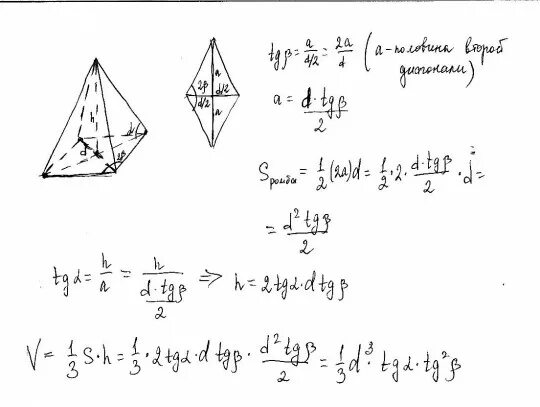 tgβ = a/(d/2) = 2a/d (a - половина второй диагонали)
a = (d·tgβ)/2
Sромба = 1/2 (2a)d = 1/2 · 2 · (d·tgβ)/2 · d =
= (d² tgβ)/2
tgα = h/a = h/((d·tgβ)/2) ⇒ h = 2tgα·d tgβ
V = 1/3 S·h = 1/3 · 2tgα·d tgβ · (d² tgβ)/2 = 1/3 d³· tgα·tg²β
h
d
α
2β
2β
a
d/2
d/2
a